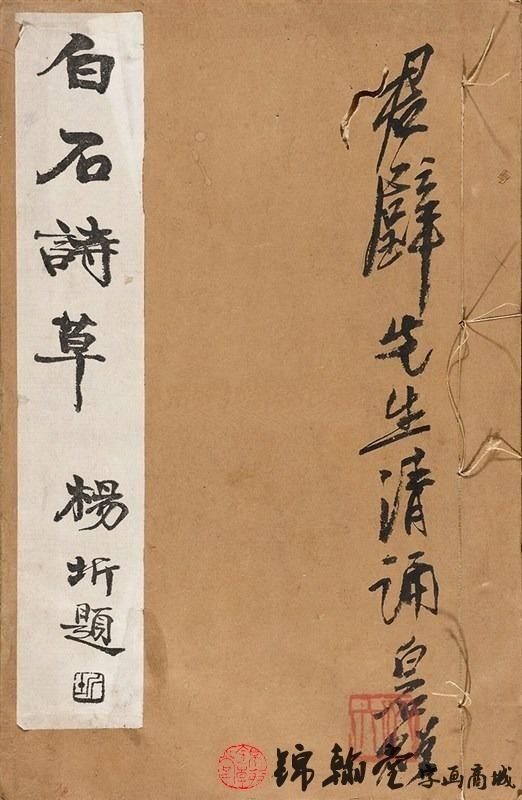 君璧先生清誦白石
白石詩草
楊圻題
圻
锦翰堂字画商城